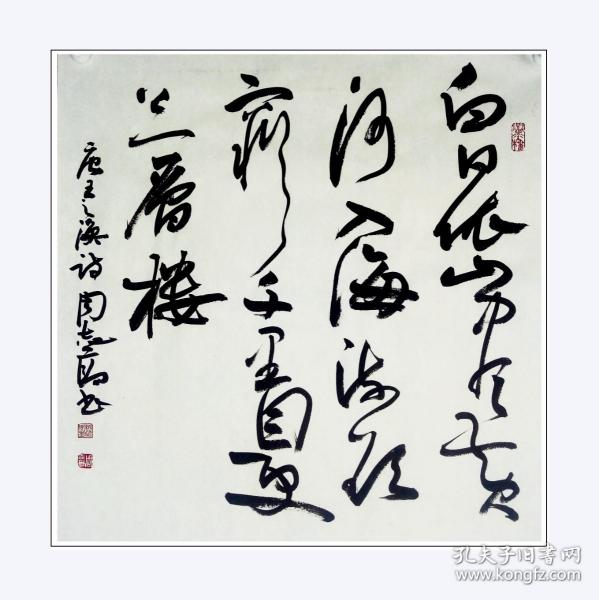 白日依山尽黄
河入海流欲
窮千里目更
上一層樓
唐王之涣诗 周志 书
孔夫子旧书网
www.kongfz.com